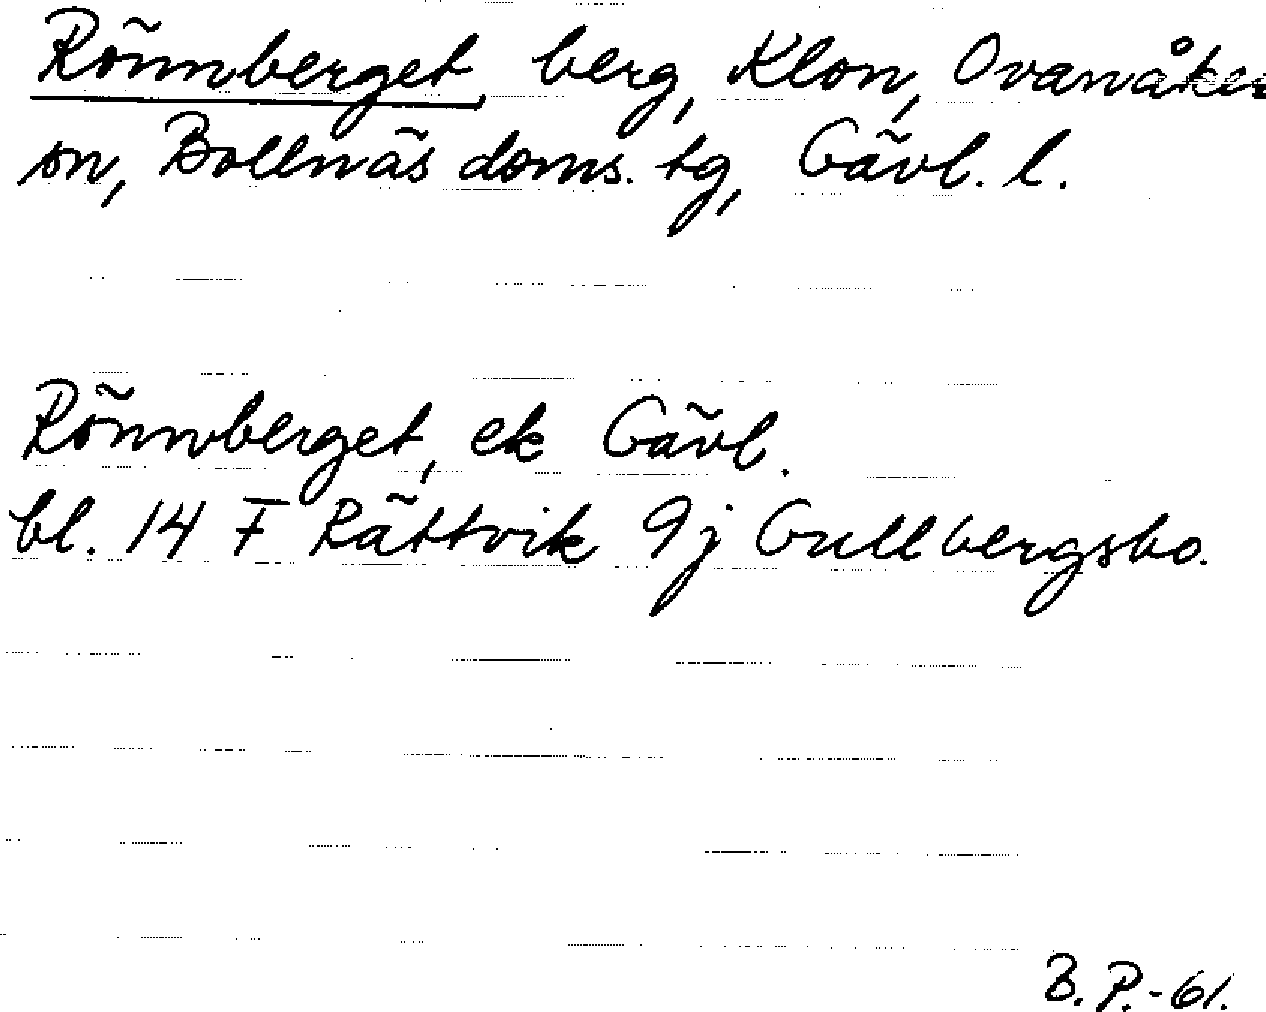 Rönnberget, berg, Klon, Ovanåker
sn, Bollnäs doms. tg, Gävl. l.
Rönnberget, ek Gävl.
bl. 14 F Rättvik 9j Gullbergsbo.
B. P. - 61.